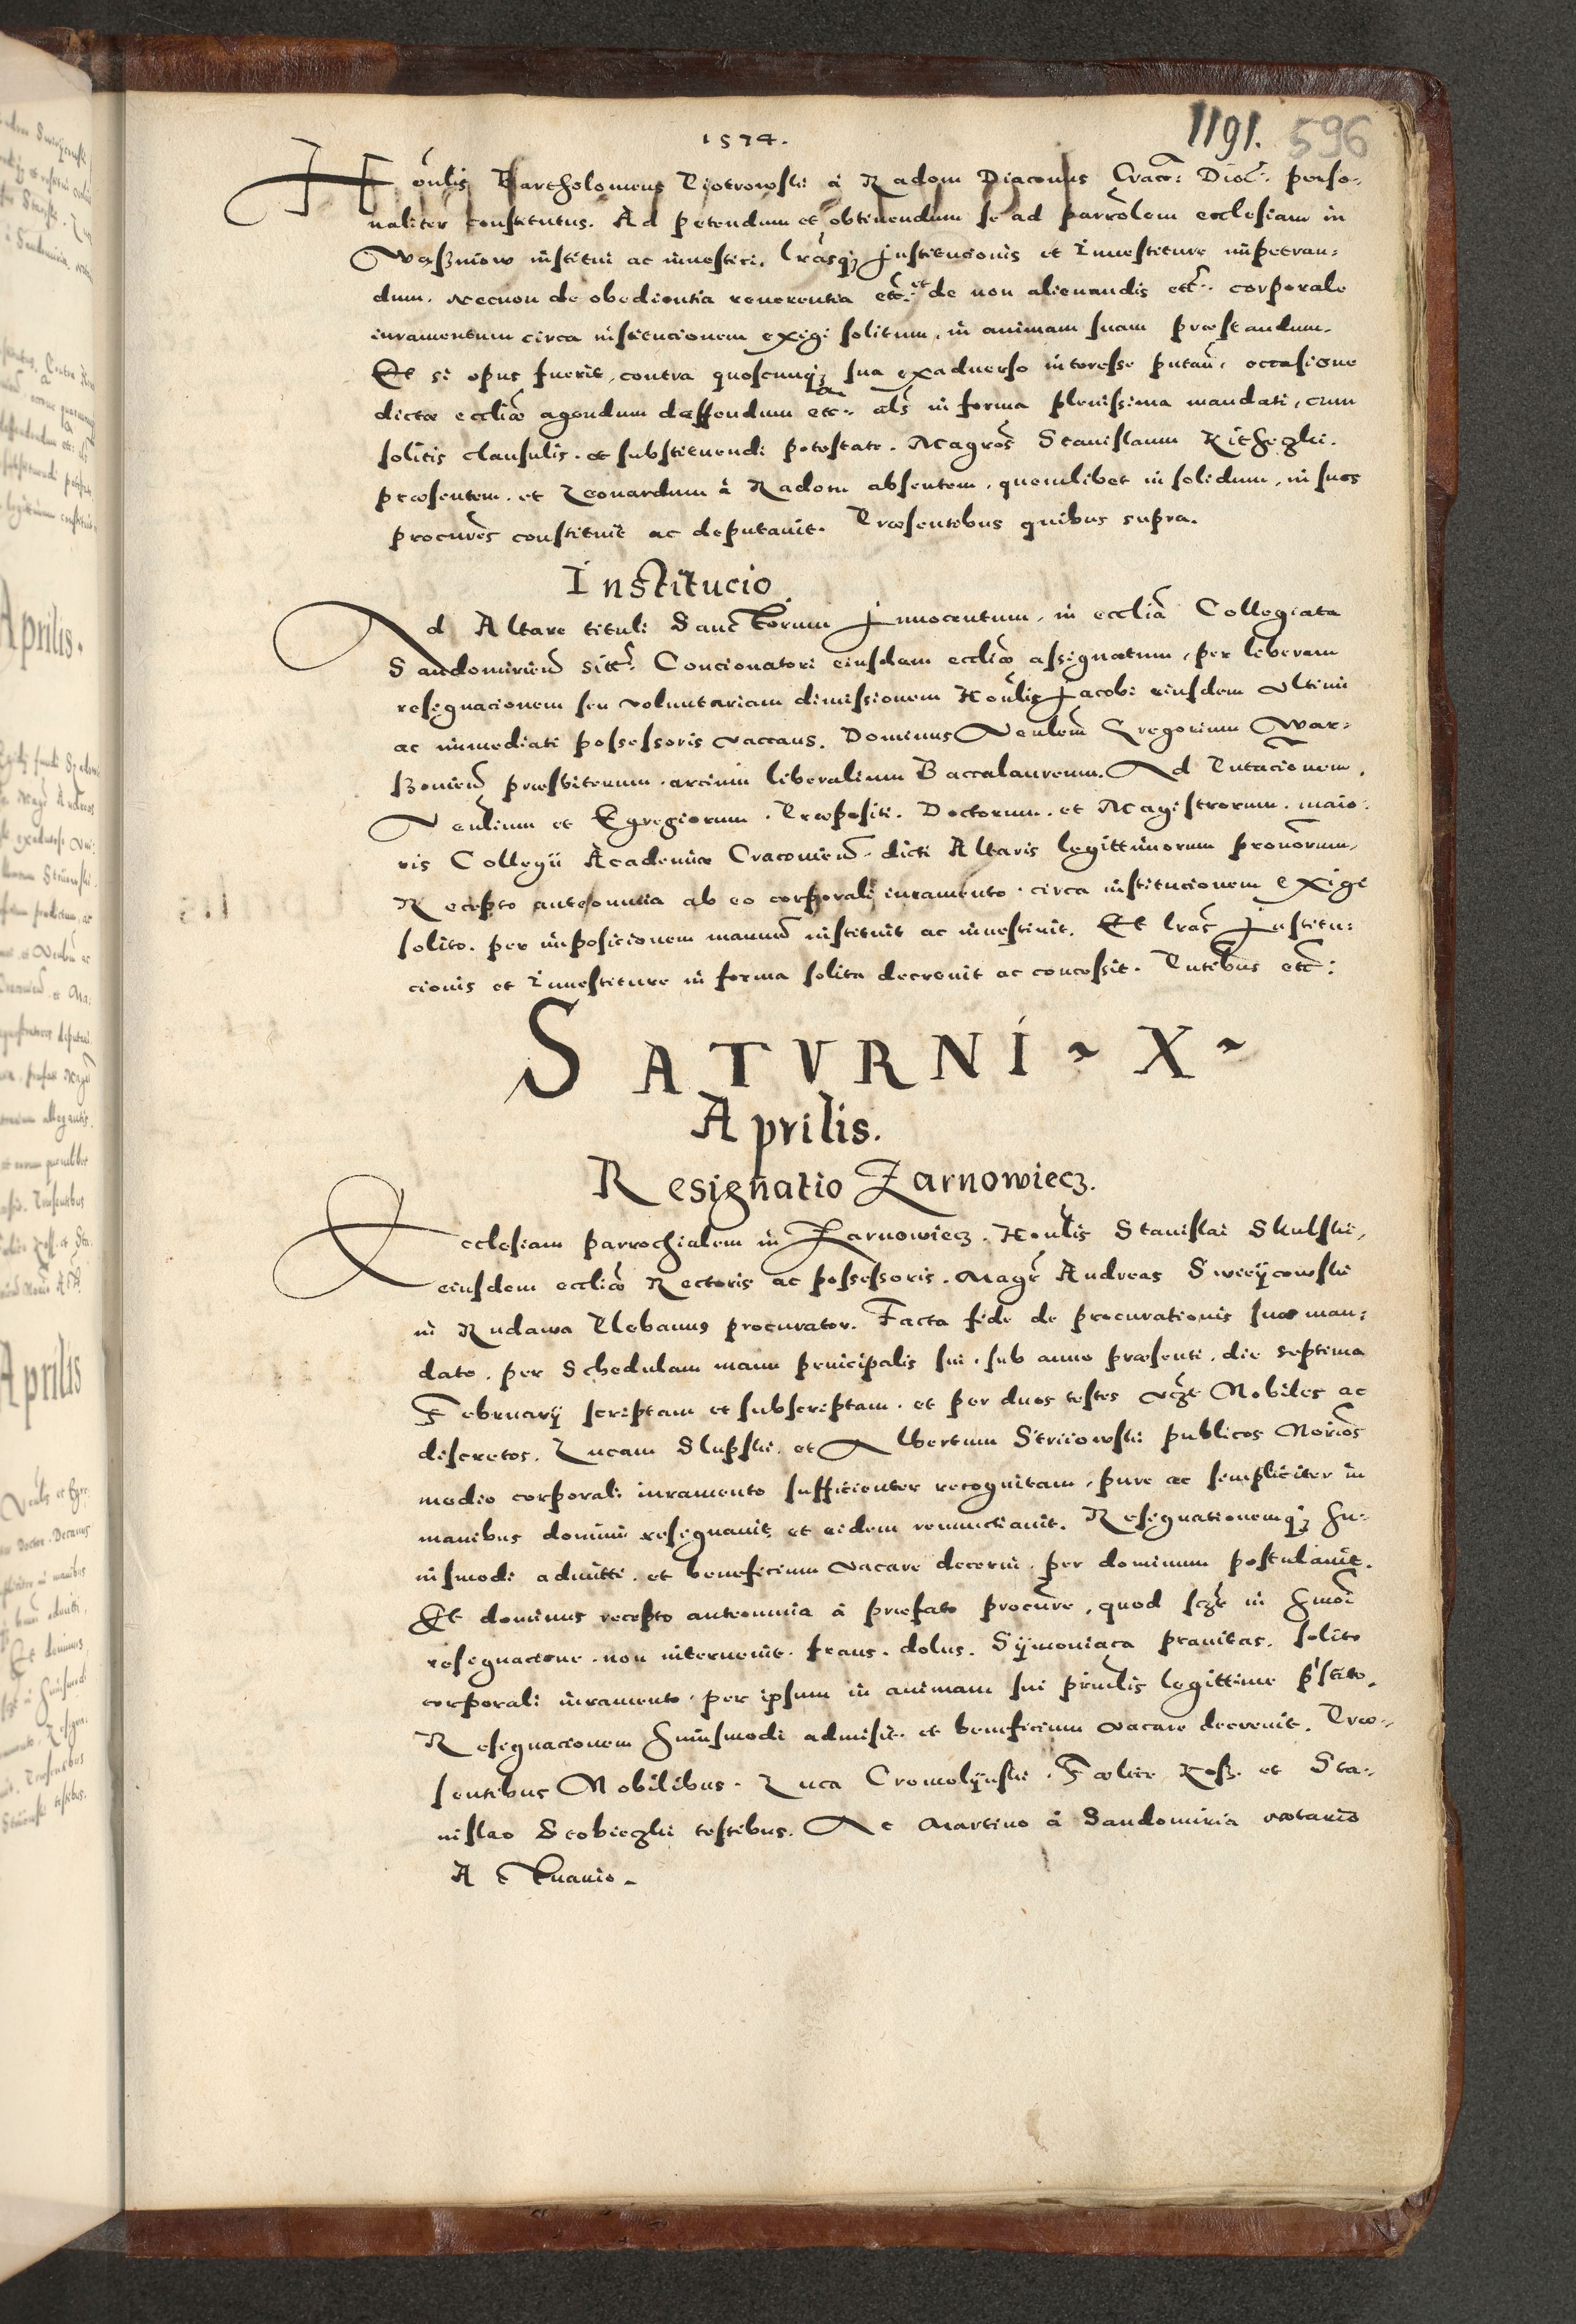 1574.
1191. 596
Honlis Bartholomeus Piotrowski à Radom Diaconus Craco: Dioc: perso-
naliter constitutus. Ad petendum et obtinendum se ad parrolem ecclesiam in
Waszniow institui ac inuestiri, lrasq; Institucionis et Inuestiture impetran:
dum. Necnon de obedientia reuerentia etc: et de non alienandis etc: corporale
iuramentum circa institucionem exigi solitum, in animam suam præstandum.
Et si opus fuerit, contra quoscunq; sua exaduerso interesse putan, occasione
dictæ eccliæ agendum deffendum etc: als in forma plenissima mandati, cum
solitis clausulis. et substituendi potestate. Magros Stanislaum
præsentem. et Leonardum à Radom absentem, quemlibet in solidum, in suos
procures constituit ac deputauit. Præsentibus quibus supra.
Institucio
Ad Altare tituli Sanctorum Innocentum, in ecclia Collegiata
Sandomirien sitt: Concionatori eiusdem eccliæ assignatum, per liberam
resignacionem seu voluntariam dimissionem Honlis Jacobi eiusdem vltimi
ac immediati possessoris vaccans. Dominus Venlem Gregorium War-
szouien præsbiterum. arcium liberalium Baccalaureum. Ad Pntacionem,
Venlium et Egregiorum. Præpositi. Doctorum. et Magistrorum. maio-
ris Collegii Academiæ Cracouien. dicti Altaris legittimorum pronorum,
Recepto anteomnia ab eo corporali iuramento. circa institucionem exigi
solito. per imposicionem manuu instituit ac inuestiuit. Et lras Institu:
cionis et Inuestiture in forma solita decreuit ac concessit. Pntibus etc:
SATVRNI ~ X ~
Aprilis.
Resignatio Zarnowiecz.
Ecclesiam parrochialem in Zarnowiecz. Honlis Stanislai Skulski,
eiusdem eccliæ Rectoris ac possessoris. Magr Andreas Swiiycowski
in Rudawa Plebanus procurator. Facta fide de procurationis suæ man:
dato. per Schedulam manu principalis sui, sub anno præsenti. die septima
February scriptam et subscriptam. et per duos testes vczt Nobiles ac
discretos. Lucam Slupski. et Albertum Striiowski publicos Norios
medio corporali iuramento sufficienter recognitam, pure ac simpliciter in
manibus domini resignauit et eidem renunctiauit. Resignationemq; hu-
iusmodi admitti. et beneficium vacare decerni. per dominum postulauit.
Et dominus recepto anteomnia à præfato procure, quod sczt in hmoi
resignacione. non interuenit. fraus. dolus. Symoniaca prauitas. solito
corporali iuramento. per ipsum in animam sui prinlis legittime pstito.
Resignacionem huiusmodi admisit. et beneficium vacare decreuit. Præ-
sentibus Nobilibus. Luca Cromolynski. Fælice Kosz. et Sta-
nislao Scobieyski testibus. Ac Martino à Sandomiria notario
Actuario.